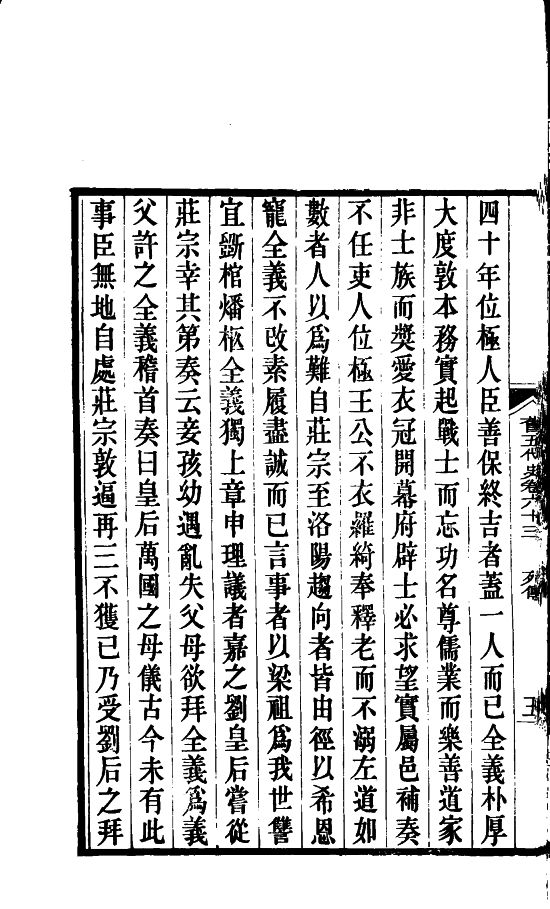 四十年位極人臣善保終吉者蓋一人而已全義朴厚
大度敦本務實起戰士而忘功名尊儒業而樂善道家
非士族而獎愛衣冠開幕府辟士必求望實屬邑補奏
不任吏人位極王公不衣羅綺奉釋老而不溺左道如
數者人以爲難自莊宗至洛陽趨向者皆由徑以希恩
寵全義不改素履盡誠而已言事者以梁祖爲我世讐
宜斲棺燔柩全義獨上章申理議者嘉之劉皇后嘗從
莊宗幸其第奏云妾孩幼遇亂失父母欲拜全義爲義
父許之全義稽首奏曰皇后萬國之母儀古今未有此
事臣無地自處莊宗敦逼再三不獲已乃受劉后之拜
舊五代史卷六十三 列傳 五